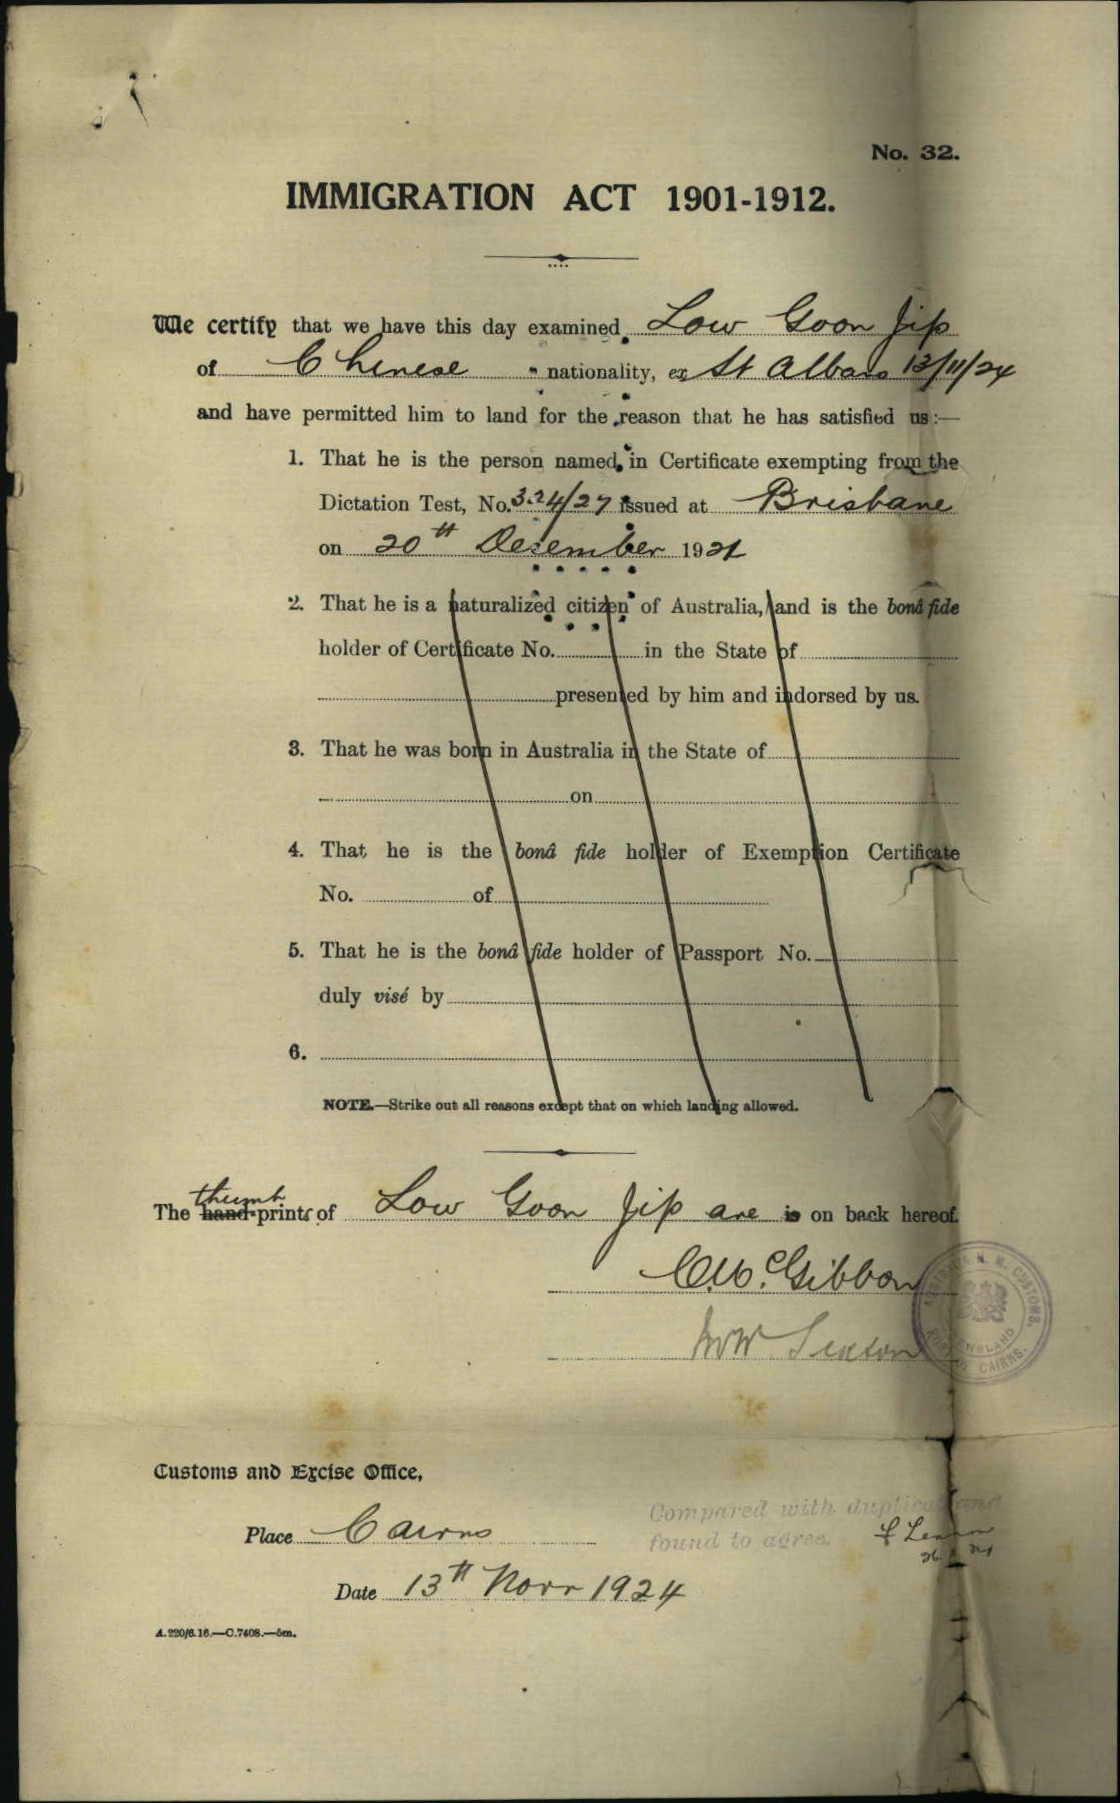 No. 32.
IMMIGRATION ACT 1901-1912.
We certify that we have this day examined Low Goon Jip
of Chinese nationality, ex St Albans 13/11/24
and have permitted him to land for the reason that he has satisfied us:—
1. That he is the person named in Certificate exempting from the
Dictation Test, No. 324/27 issued at Brisbane
on 20th December 1921
2. That he is a naturalized citizen of Australia, and is the bonâ fide
holder of Certificate No. in the State of
presented by him and indorsed by us.
3. That he was born in Australia in the State of
on
4. That he is the bonâ fide holder of Exemption Certificate
No. of
5. That he is the bonâ fide holder of Passport No.
duly visé by
6.
NOTE.—Strike out all reasons except that on which landing allowed.
thumb
The hand-prints of Low Goon Jip are is on back hereof.
C. McGibbon
CUSTOMS. QUEENSLAND CAIRNS.
Customs and Excise Office,
Compared with duplicate and
Place Cairns
found to agree.
Date 13th Novr 1924
A.220/6.16.—C.7408.—5m.